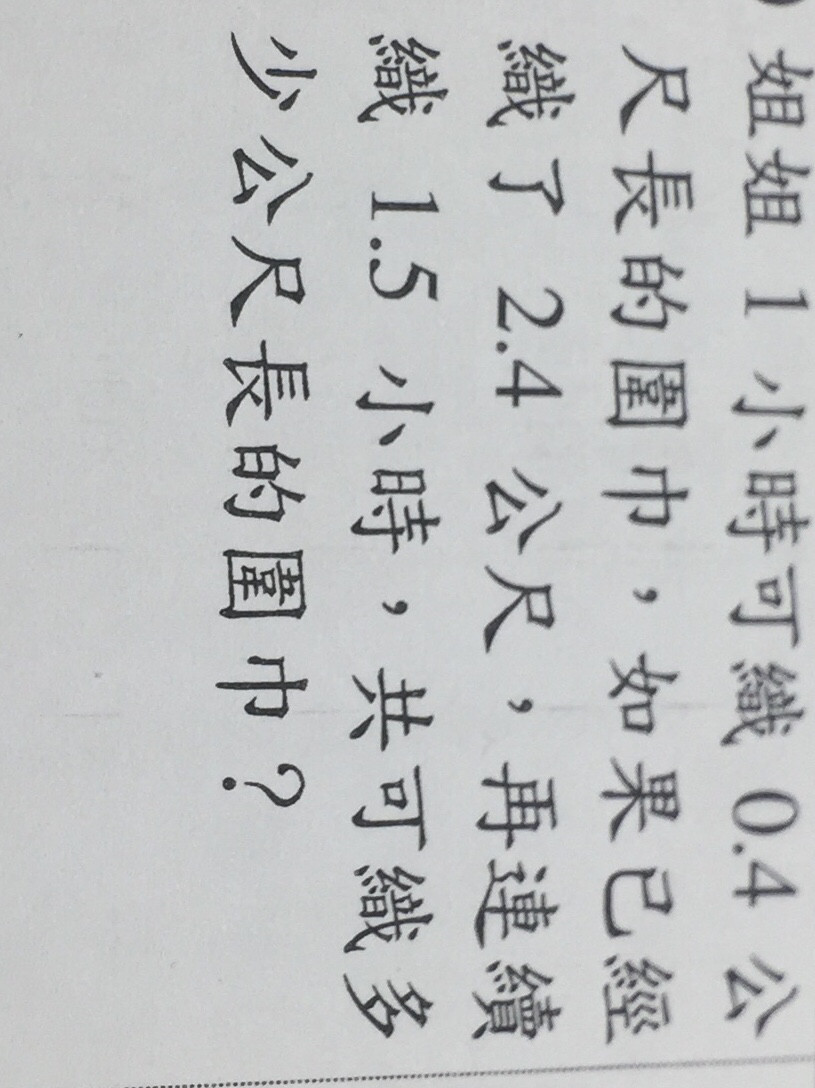 姐姐 1 小時可織 0.4 公
尺長的圍巾，如果已經
織了 2.4 公尺，再連續
織 1.5 小時，共可織多
少公尺長的圍巾？